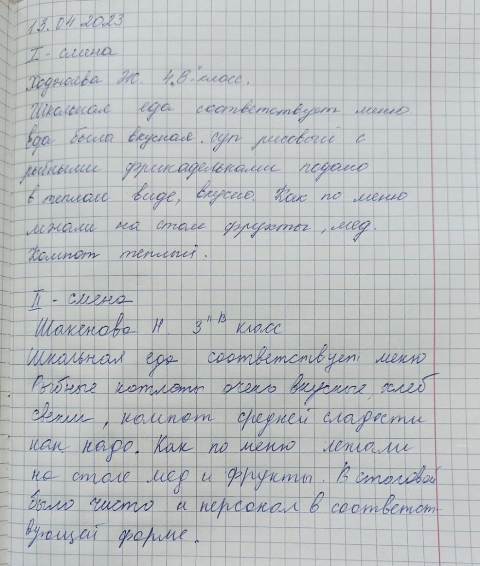 13.04 2023
I - смена
Ходжаева Ж. 4 "В" класс.
Школьная еда соответствует меню
еда была вкусная. суп рисовый с
рыбными фрикадельками подано
в теплом виде, вкусно. Как по меню
лежали на столе фрукты, мед.
Компот теплый.
II - смена
Шакенова Н. 3 "В" класс
Школьная еда соответствует меню
Рыбные котлеты очень вкусные, хлеб
свежий, компот средней сладости
как надо. Как по меню лежали
на столе мед и фрукты. В столовой
было чисто и персонал в соответст
вующей форме.